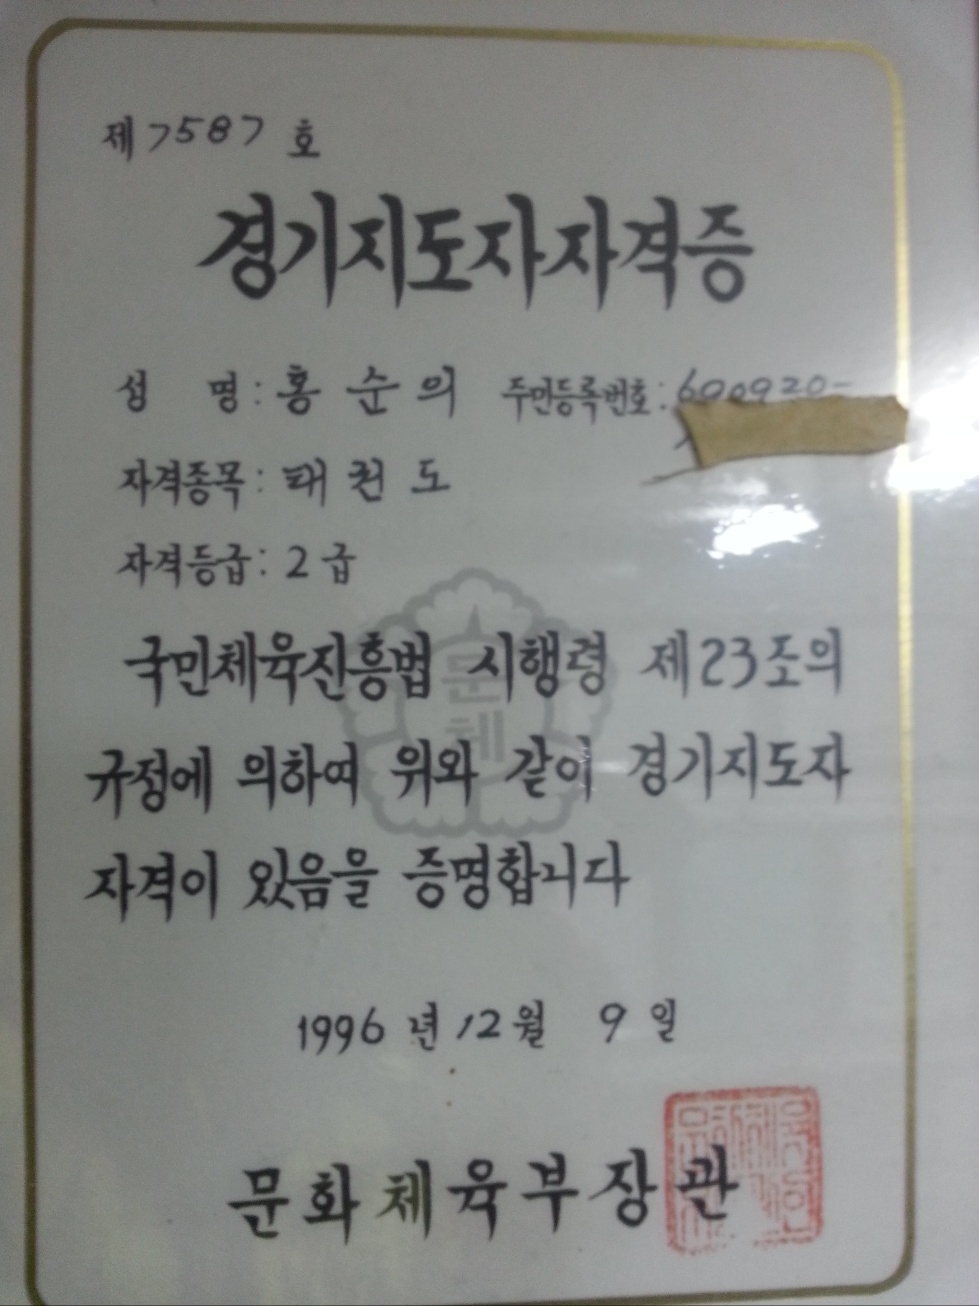 제 7587 호
경기지도자자격증
성 명: 홍 순 의 주민등록번호: 690920-
자격종목: 태 권 도
자격등급: 2 급
문체
국민체육진흥법 시행령 제23조의
규정에 의하여 위와 같이 경기지도자
자격이 있음을 증명합니다
1996 년 12 월 9 일
문화체육부장관